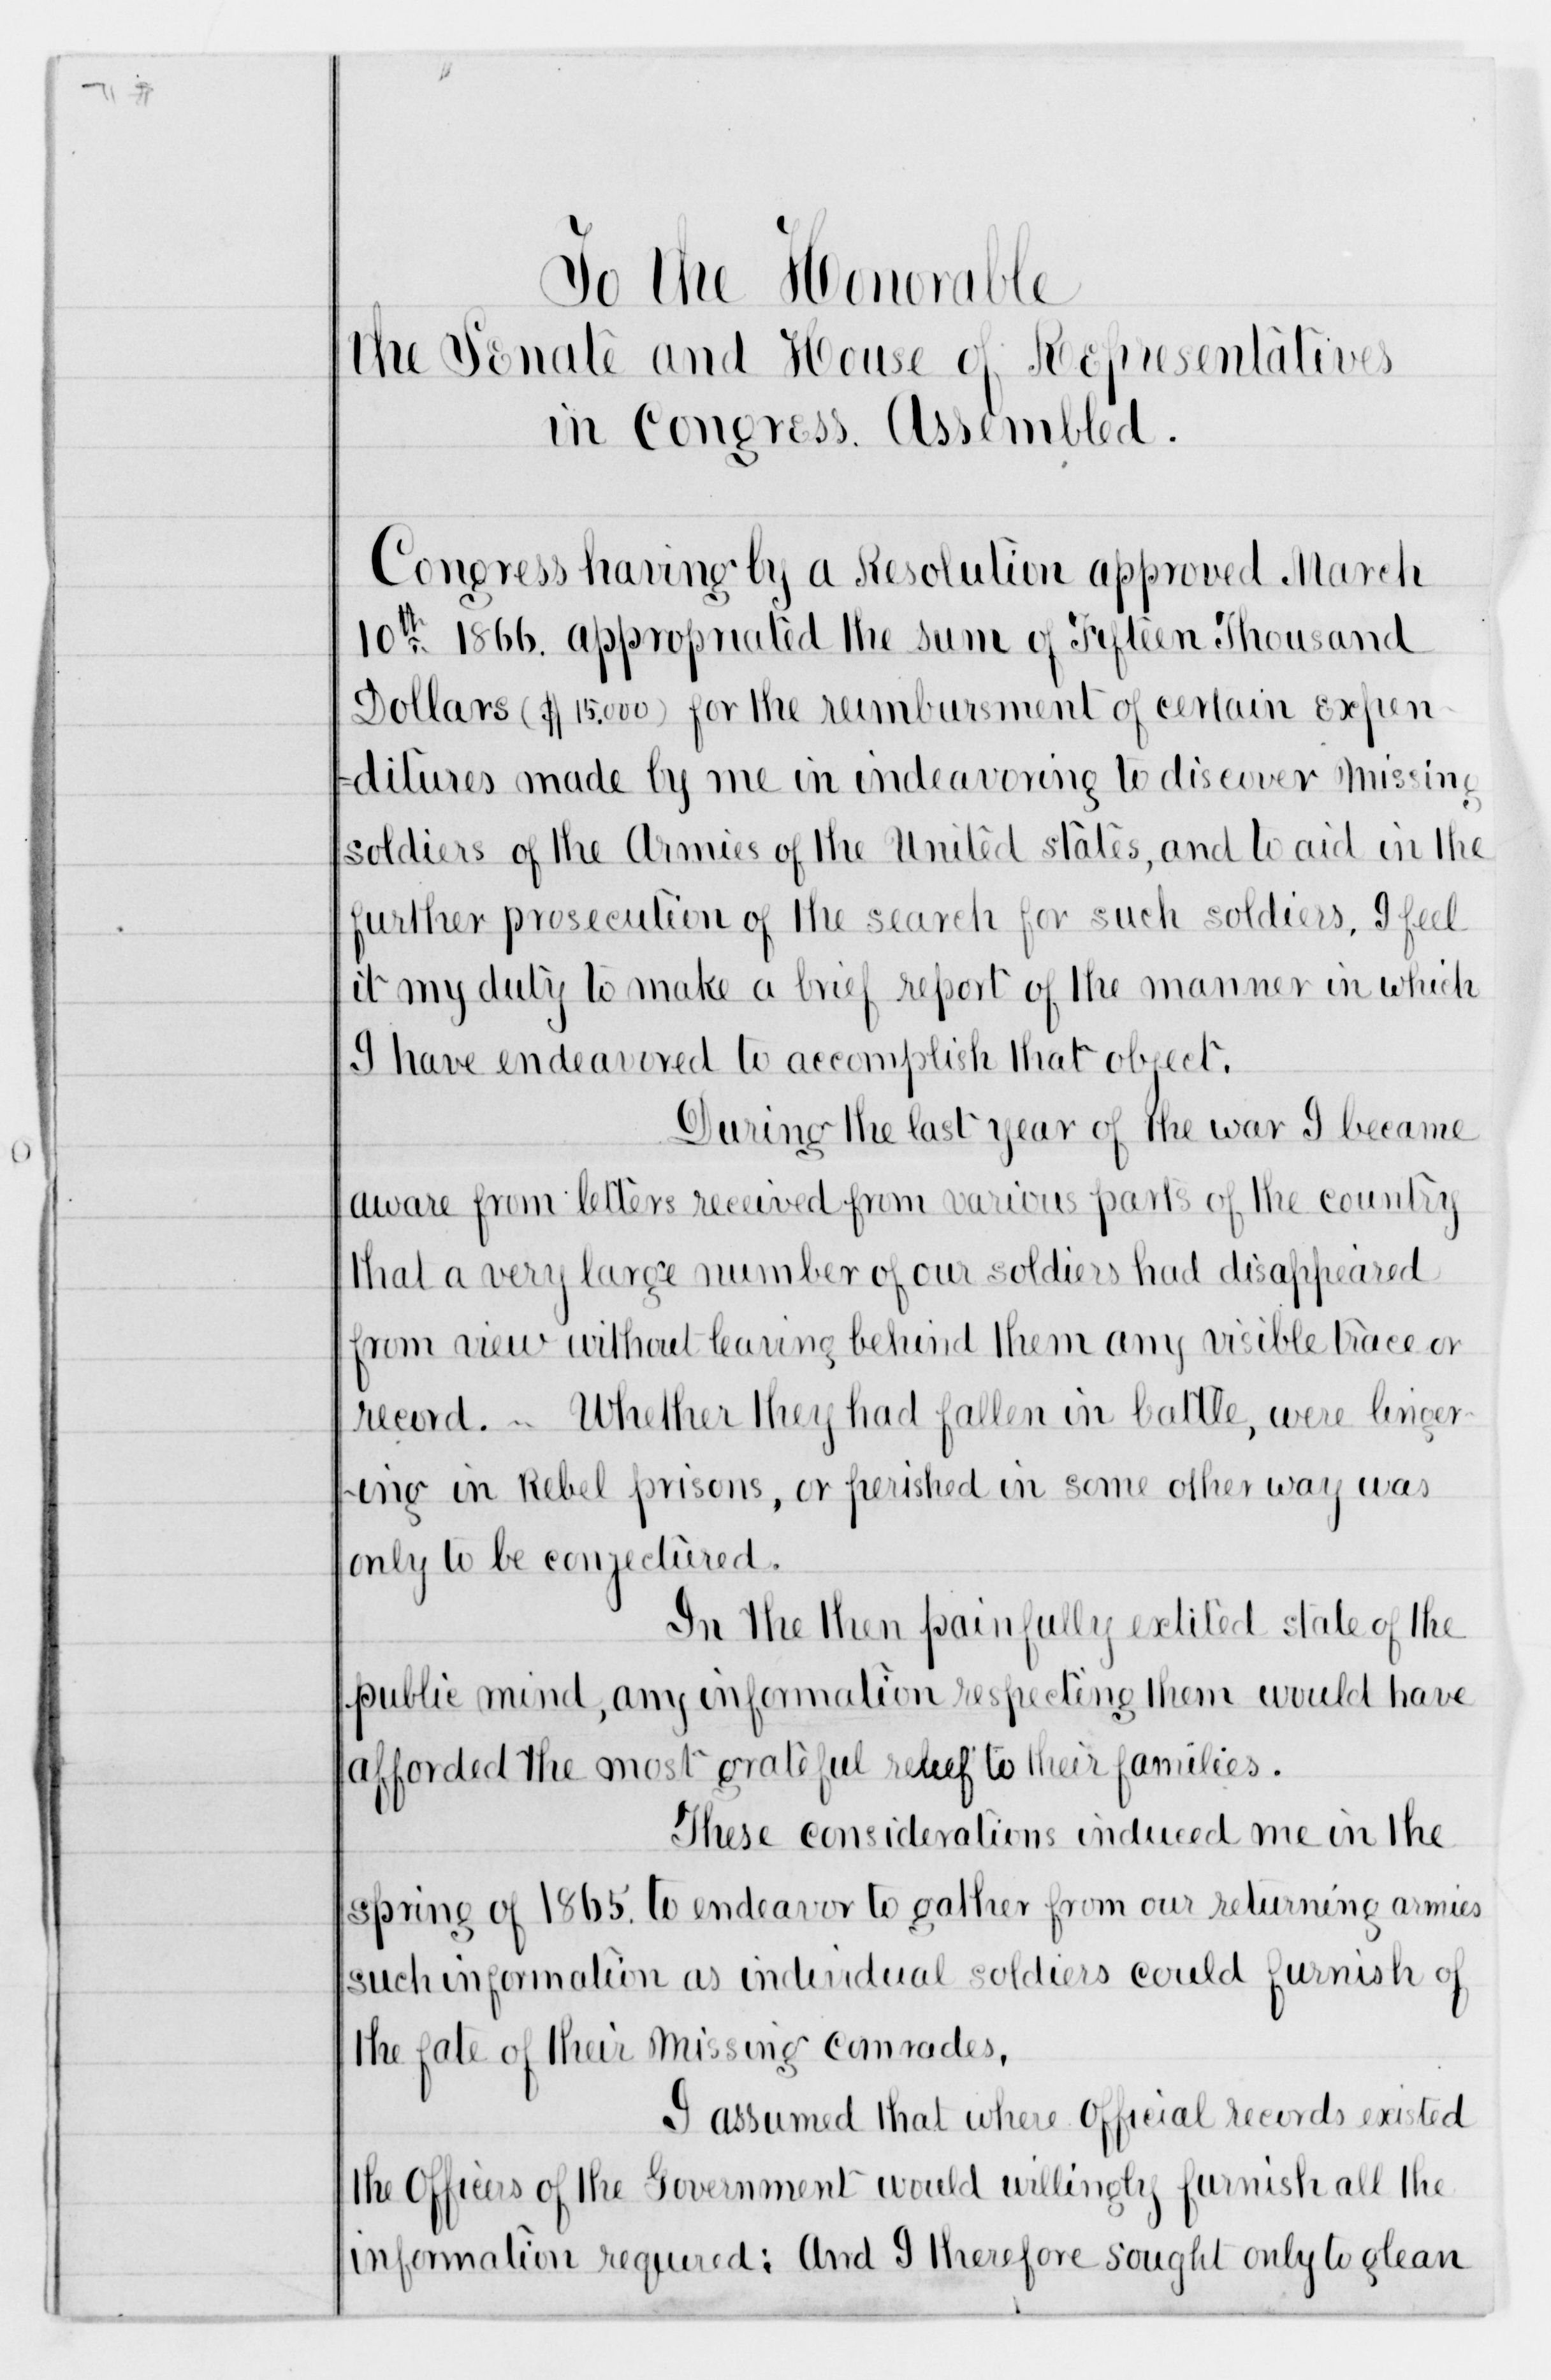 To the Honorable
the Senate and House of Representatives
in Congress. Assembled.
Congress having by a Resolution approved March
10th 1866. appropriated the sum of Fifteen Thousand
Dollars ($15.000) for the reimbursment of certain expen-
-ditures made by me in indeavoring to discover missing
soldiers of the Armies of the United states, and to aid in the
further prosecution of the search for such soldiers, I feel
it my duty to make a brief report of the manner in which
I have endeavored to accomplish that object.
During the last year of the war I became
aware from letters received from various parts of the country
that a very large number of our soldiers had disappeared
from view without leaving behind them any visible trace or
record. - Whether they had fallen in battle, were linger-
-ing in Rebel prisons, or perished in some other way was
only to be conjectured.
In the then painfully exlited state of the
public mind, any information respecting them would have
afforded the most grateful relief to their families.
These considerations induced me in the
spring of 1865. to endeavor to gather from our returning armies
such information as individual soldiers could furnish of
the fate of their missing comrades,
I assumed that where official records existed
the Officers of the Government would willingly furnish all the
information required; And I therefore sought only to glean